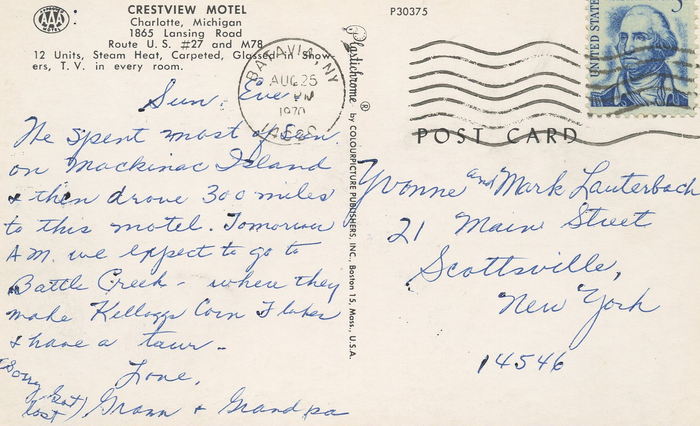 AAA
CRESTVIEW MOTEL
Charlotte, Michigan
1865 Lansing Road
Route U.S. #27 and M78
12 Units, Steam Heat, Carpeted, Glassed-in Show-
ers, T.V. in every room.
Sun. Eve
We spent most of Sun
on Mackinac Island
& then drove 300 miles
to this motel. Tomorrow
A.M. we expect to go to
Battle Creek - where they
make Kelloggs Corn Flakes
& have a tour -
Love,
Gramm & Grandpa
(Sorry Got
lost)
Plastichrome ® by COLOURPICTURE PUBLISHERS, INC., Boston 15, Mass., U.S.A.
P30375
BATAVIA, NY
AUG 25
PM
1970
UNITED STATES
5
POST CARD
Yvonne and Mark Lauterbach
21 Main Street
Scottsville,
New York
14546